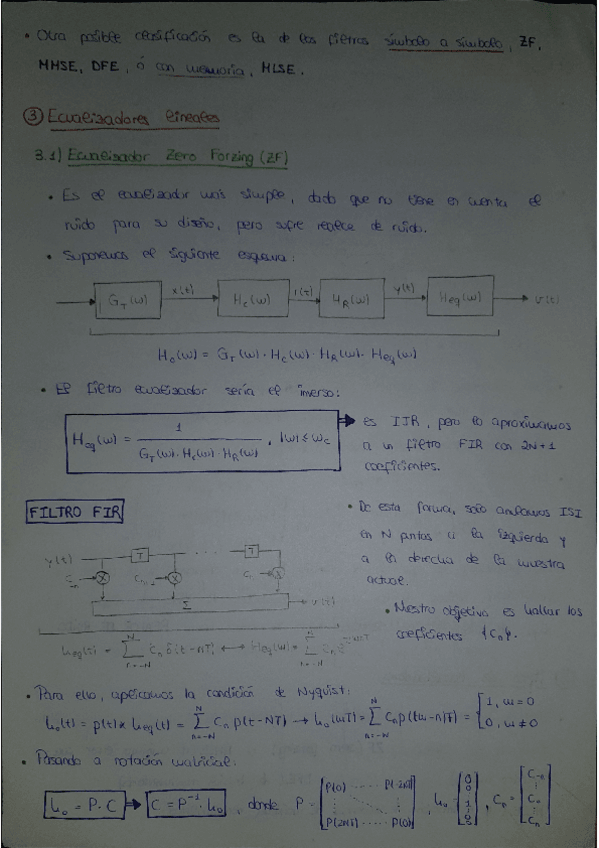 • Otra posible clasificación es la de los filtros símbolo a símbolo, ZF,
MMSE, DFE, ó con memoria, MLSE.
③ Ecualizadores lineales
3.1) Ecualizador Zero Forzing (ZF)
• Es el ecualizador más simple, dado que no tiene en cuenta el
ruido para su diseño, pero sufre realce de ruido.
• Suponemos el siguiente esquema:
G_T(ω) x(t) H_c(ω) r(t) H_R(ω) y(t) H_eq(ω) v(t)
H_o(ω) = G_T(ω) · H_c(ω) · H_R(ω) · H_eq(ω)
• El filtro ecualizador sería el inverso:
H_eq(ω) = 1 / (G_T(ω) · H_c(ω) · H_R(ω)), |ω| ≤ ω_c
es IIR, pero lo aproximamos
a un filtro FIR con 2N+1
coeficientes.
FILTRO FIR
• De esta forma, solo anulamos ISI
en N puntos a la izquierda y
a la derecha de la muestra
actual.
y(t) T ... T
Σ v(t)
• Nuestro objetivo es hallar los
coeficientes {C_n}.
• Para ello, aplicamos la condición de Nyquist:
h_o(t) = p(t) * h_eq(t) = Σ_{n=-N}^{N} C_n p(t-NT) → h_o(mT) = Σ_{n=-N}^{N} C_n p((m-n)T) = { 1, m=0
0, m≠0
• Pasando a notación matricial:
h_o = P · C → C = P^{-1} · h_o, donde P =